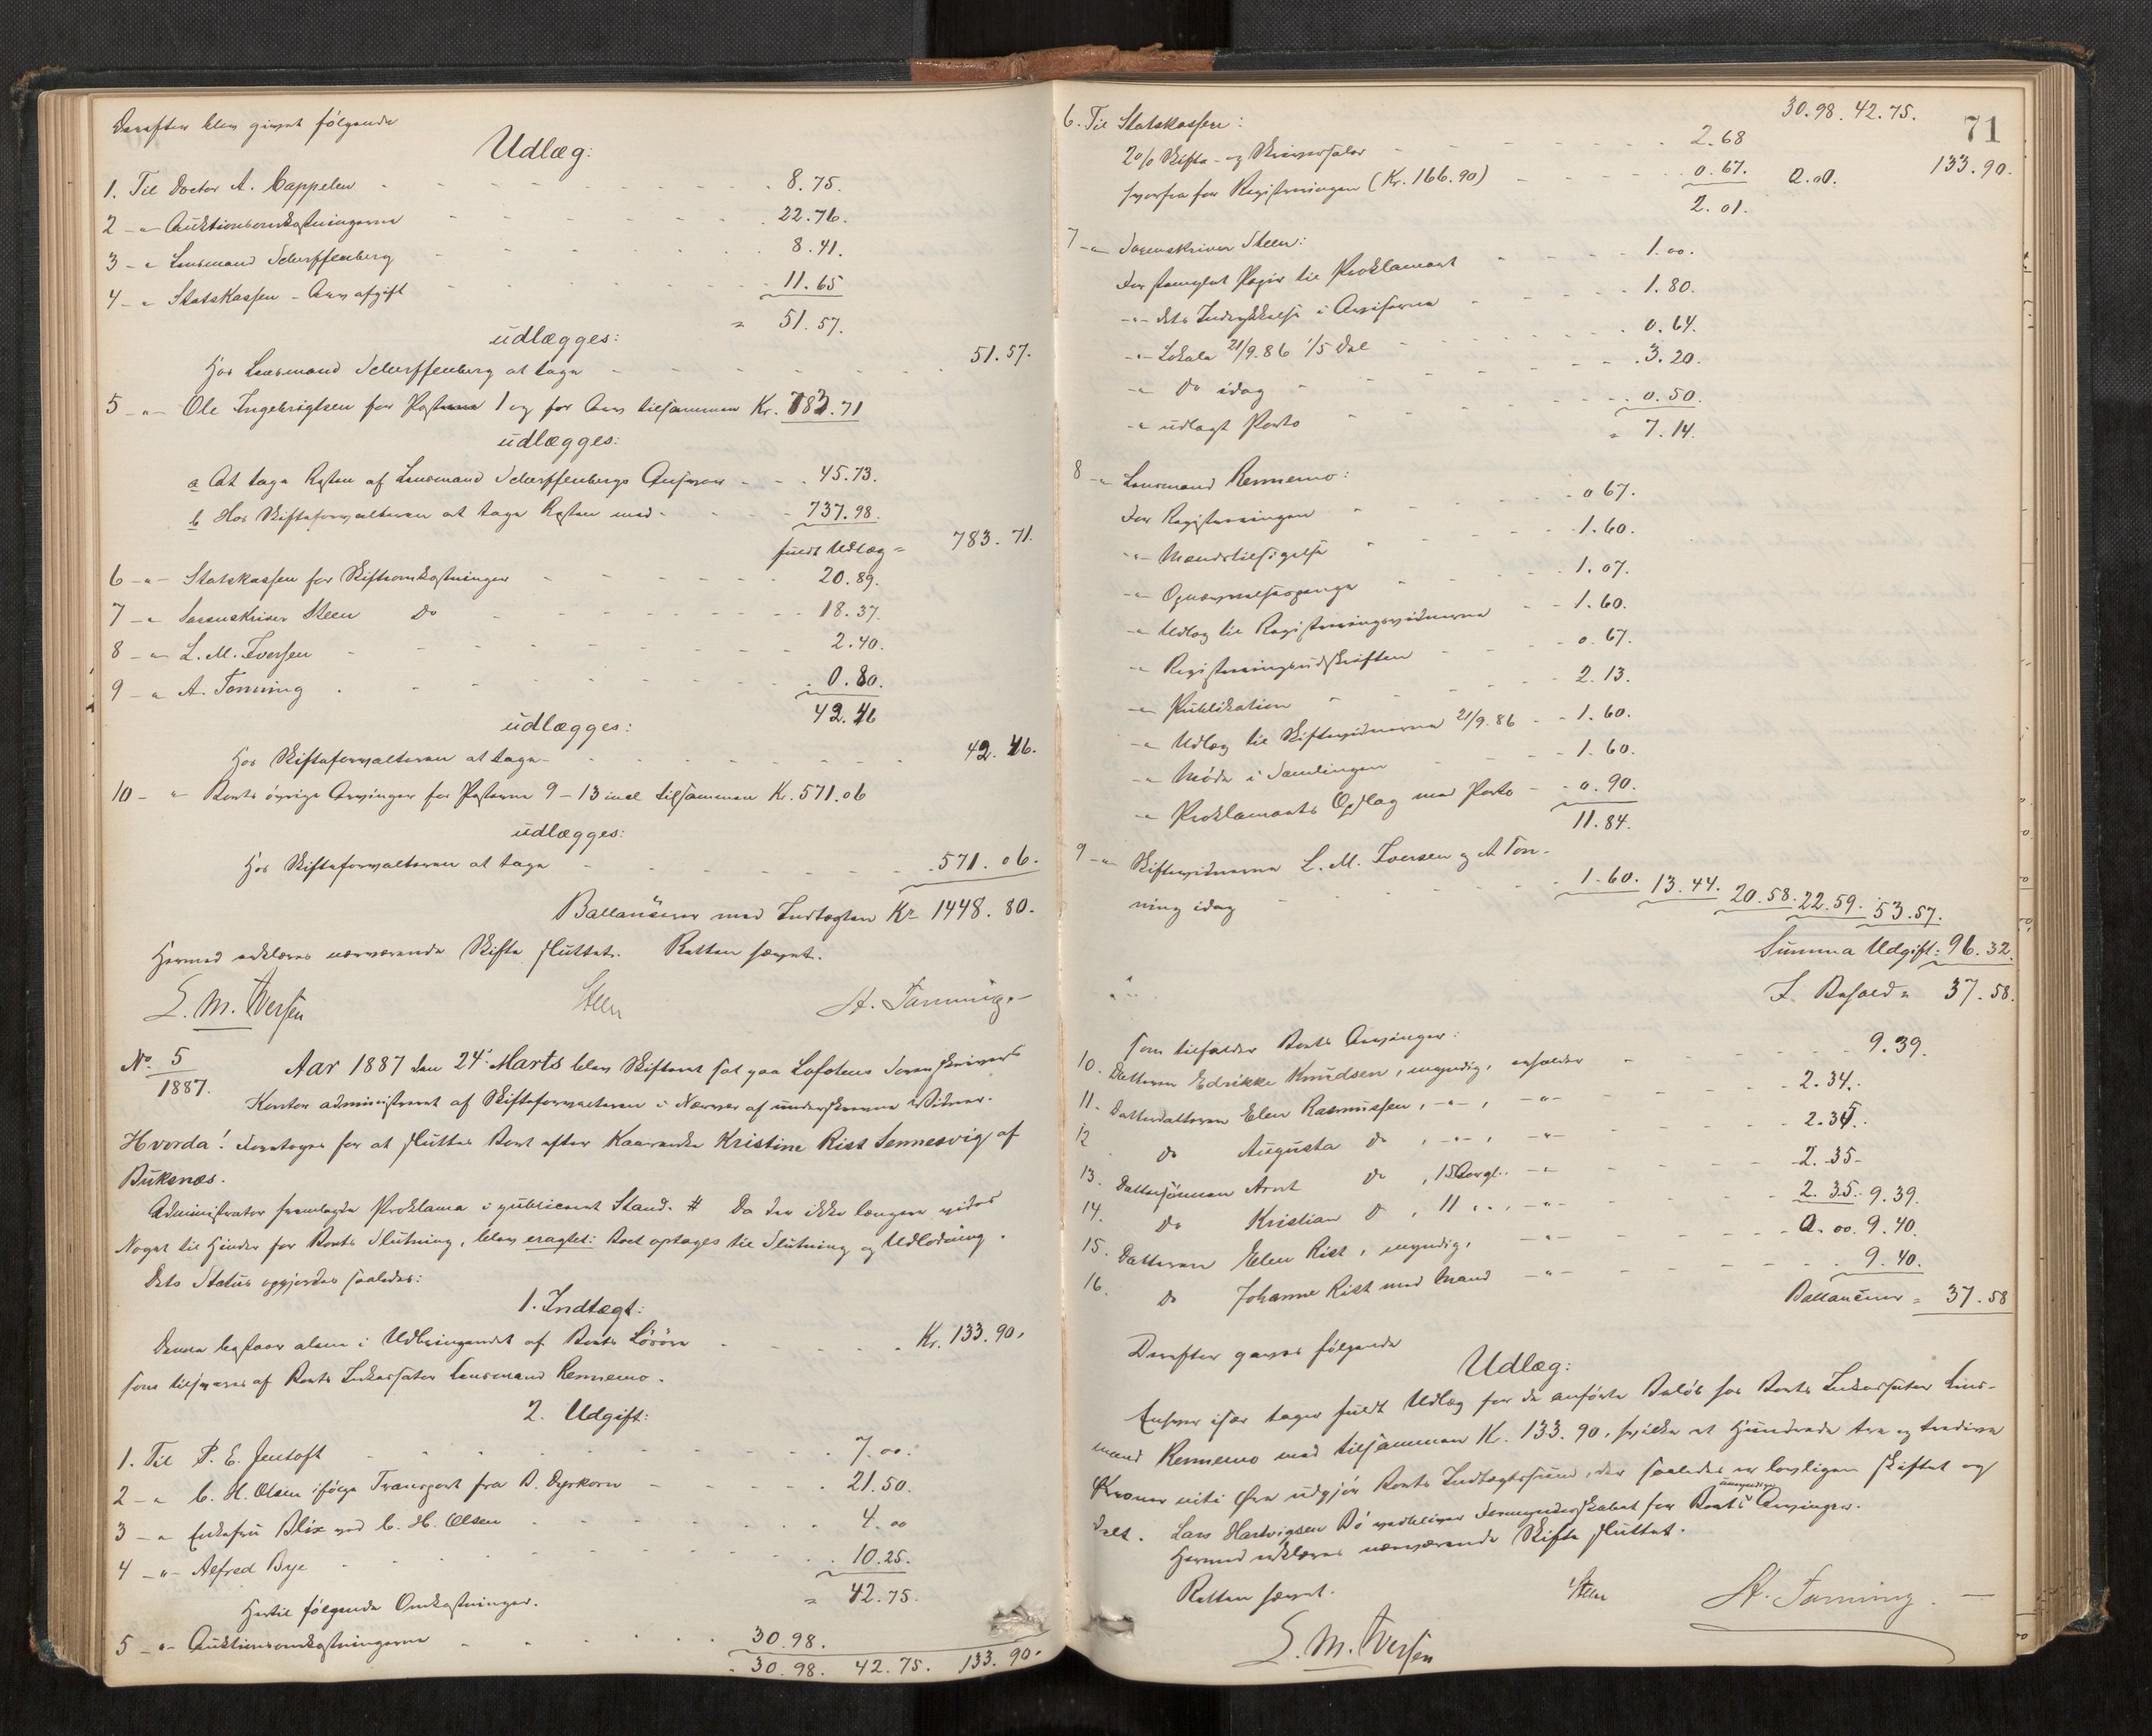 Derefter blev givet følgende
Udlæg:
1. Til Doctor A. Cappelen 8.75.
2 -"- Auktionsomkostningerne 22.76.
3 -"- Lensmand Scharffenberg 8.41.
4 -"- Statskassen - Arveafgift 11.65
= 51.57.
udlægges:
Hos Lensmand Scharffenberg at tage 51.57.
5 -"- Ole Ingebrigtsen for Posterne 1 og for Arv tilsammen Kr. 783.71
udlægges:
a At tage Resten af Lensmand Scharffenbergs Ansvar 45.73.
b Hos Skifteforvalteren at tage Resten med 737.98.
fuldt Udlæg = 783.71.
6 -"- Statskassen for Skifteomkostninger 20.89.
7 -"- Sorenskriver Steen Do 18.37.
8 -"- L. M. Iversen 2.40.
9 -"- A. Tonning 0.80.
42.46
udlægges:
Hos Skifteforvalteren at tage 42.46.
10 -"- Boets øvrige Arvinger for Posterne 9-13 incl tilsammen Kr. 571.06
udlægges:
Hos Skifteforvalteren at tage 571.06.
Ballancerer med Indtægten Kr 1448.80.
Hermed erklæres nærværende Skifte sluttet. Retten hævet.
L. M. Iversen Steen A. Tonning.
No 5
1887.
Aar 1887 den 24' Marts blev Skifteret sat paa Lofotens Sorenskrivers
Kontor administreret af Skifteforvalteren i Nærvær af underskrevne Vidner.
Hvorda! Foretoges for at sluttes Boet efter Kaarenke Kristine Rist Sennesvig af
Buksnæs.
Administrator fremlagde Proklama i publiceret Stand. # Da der ikke længere vides
Noget til Hinder for Boets Slutning, blev eragtet: Boet optages til Slutning og Udlodning.
Dets Status opgjordes saaledes:
1. Indtægt:
Denne bestaar alene i Udbringendet af Boets Løsøre Kr. 133.90.
som tilsvares af Boets Inkassator Lensmand Rennemo.
2. Udgift:
1. Til P. E. Jentoft 7.00.
2 -"- C. H. Olsen ifølge Transport fra D. Dyrkorn 21.50.
3 -"- Enkefru Blix ved C. H. Olsen 4.00
4 -"- Alfred Bye 10.25.
= 42.75.
Hertil følgende Omkostninger.
5 -"- Auktionsomkostningerne 30.98.
30.98. 42.75. 133.90.
71
30.98. 42.75. 133.90.
6. Til Statskassen:
2 o/o Skifte- og Skriversalær 2.68
hvorfra for Registreringen (Kr. 166.90) 0.67. 0.00.
2.01.
7 -"- Sorenskriver Steen:
For stemplet Papir til Proklamaet 1.00.
-"- dets Indrykkelse i Aviserne 1.80.
-"- Lokale 21/9.86 1/5 Del 0.64.
-"- Do idag 3.20.
-"- udlagt Porto 0.50.
= 7.14.
8 -"- Lensmand Rennemo:
For Registreringen 0 67.
-"- Mændstilsigelse 1.60.
-"- Opnævnelsespenge 1.07.
-"- Udlæg til Registreringsvidnerne 1.60.
-"- Registreringsudskriften 0.67.
-"- Publikation 2.13.
-"- Udlæg til Skiftevidnerne 21/9.86 1.60.
-"- Møde i Samlingen 1.60.
-"- Proklamaets Opslag med Porto 0.90.
11.84.
9 -"- Skiftevidnerne L. M. Iversen og A Ton-
ning idag 1.60. 13.44. 20.58. 22.59. 53.57.
Summa Udgift: 96.32.
I Behold = 37.58.
som tilfalder Boets Arvinger:
10. Datteren Edrikke Knudsen, myndig, erholder 9.39.
11. Datterdatteren Elen Rasmussen, -"-, -"- 2.34.
12 do Augusta do, -"-, -"- 2.34.
13. Dattersønnen Arnt do, 15 Aar gl. -"- 2.35-
14. do Kristian do, 11 " ", -"- 2.35. 9.39.
15. Datteren Elen Rist, myndig, -"- 0.00. 9.40.
16. do Johanne Rist med Mand -"- 9.40.
Ballancerer = 37.58
Derefter gaves følgende
Udlæg:
Enhver især tager fuldt Udlæg for de anførte Beløb hos Boets Inkassator Lens-
mand Rennemo med tilsammen Kr. 133.90, hvilke et Hundrede tre og tredive
Kroner niti Øre udgjør Boets Indtægtssum, der saaledes er lovligen skiftet og
delt. Lars Hartvigsen Bø vedbliver Formynderskabet for Boets umyndige Arvinger.
Hermed erklæres nærværende Skifte sluttet.
Retten hævet.
Steen A. Tonning.
L. M. Iversen